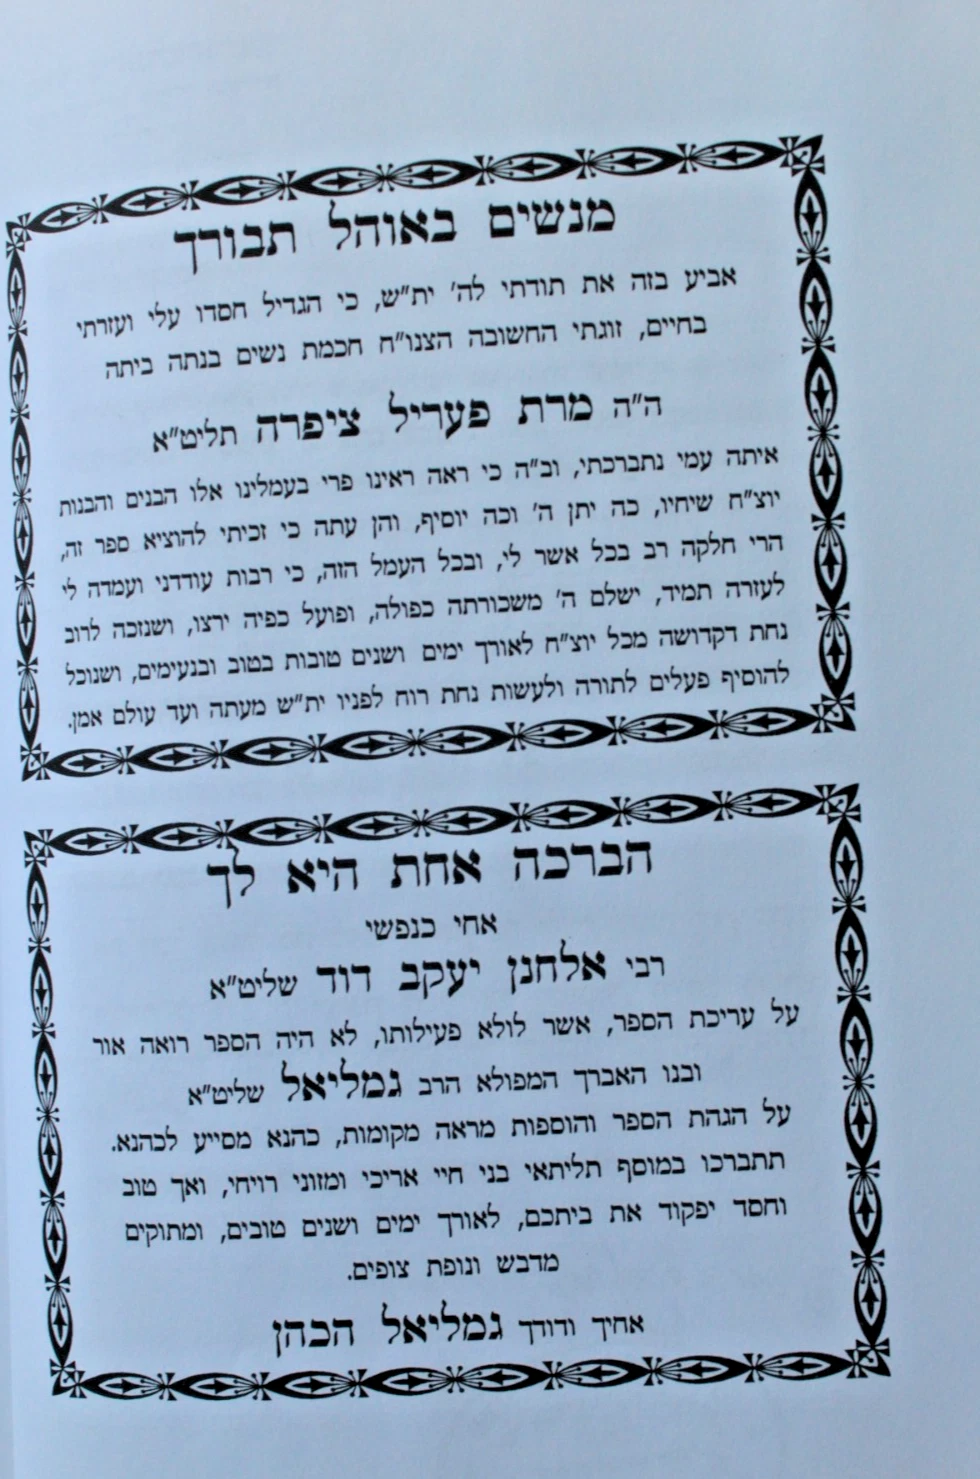 מנשים באוהל תבורך
אביע בזה את תודתי לה' ית"ש, כי הגדיל חסדו עלי ועזרתי
בחיים, זוגתי החשובה הצנו"ח חכמת נשים בנתה ביתה
ה"ה מרת פעריל ציפרה תליט"א
איתה עמי נתברכתי, וב"ה כי ראה ראינו פרי בעמלינו אלו הבנים והבנות
יוצ"ח שיחיו, כה יתן ה' וכה יוסיף, והן עתה כי זכיתי להוציא ספר זה,
הרי חלקה רב בכל אשר לי, ובכל העמל הזה, כי רבות עודדני ועמדה לי
לעזרה תמיד, ישלם ה' משכורתה כפולה, ופועל כפיה ירצו, ושנזכה לרוב
נחת דקדושה מכל יוצ"ח לאורך ימים ושנים טובות בטוב ובנעימים, ושנוכל
להוסיף פעלים לתורה ולעשות נחת רוח לפניו ית"ש מעתה ועד עולם אמן.
הברכה אחת היא לך
אחי כנפשי
רבי אלחנן יעקב דוד שליט"א
על עריכת הספר, אשר לולא פעילותו, לא היה הספר רואה אור
ובנו האברך המפולא הרב גמליאל שליט"א
על הגהת הספר והוספות מראה מקומות, כהנא מסייע לכהנא.
תתברכו במוסף תליתאי בני חיי אריכי ומזוני רויחי, ואך טוב
וחסד יפקוד את ביתכם, לאורך ימים ושנים טובים, ומתוקים
מדבש ונופת צופים.
אחיך ודודך גמליאל הכהן